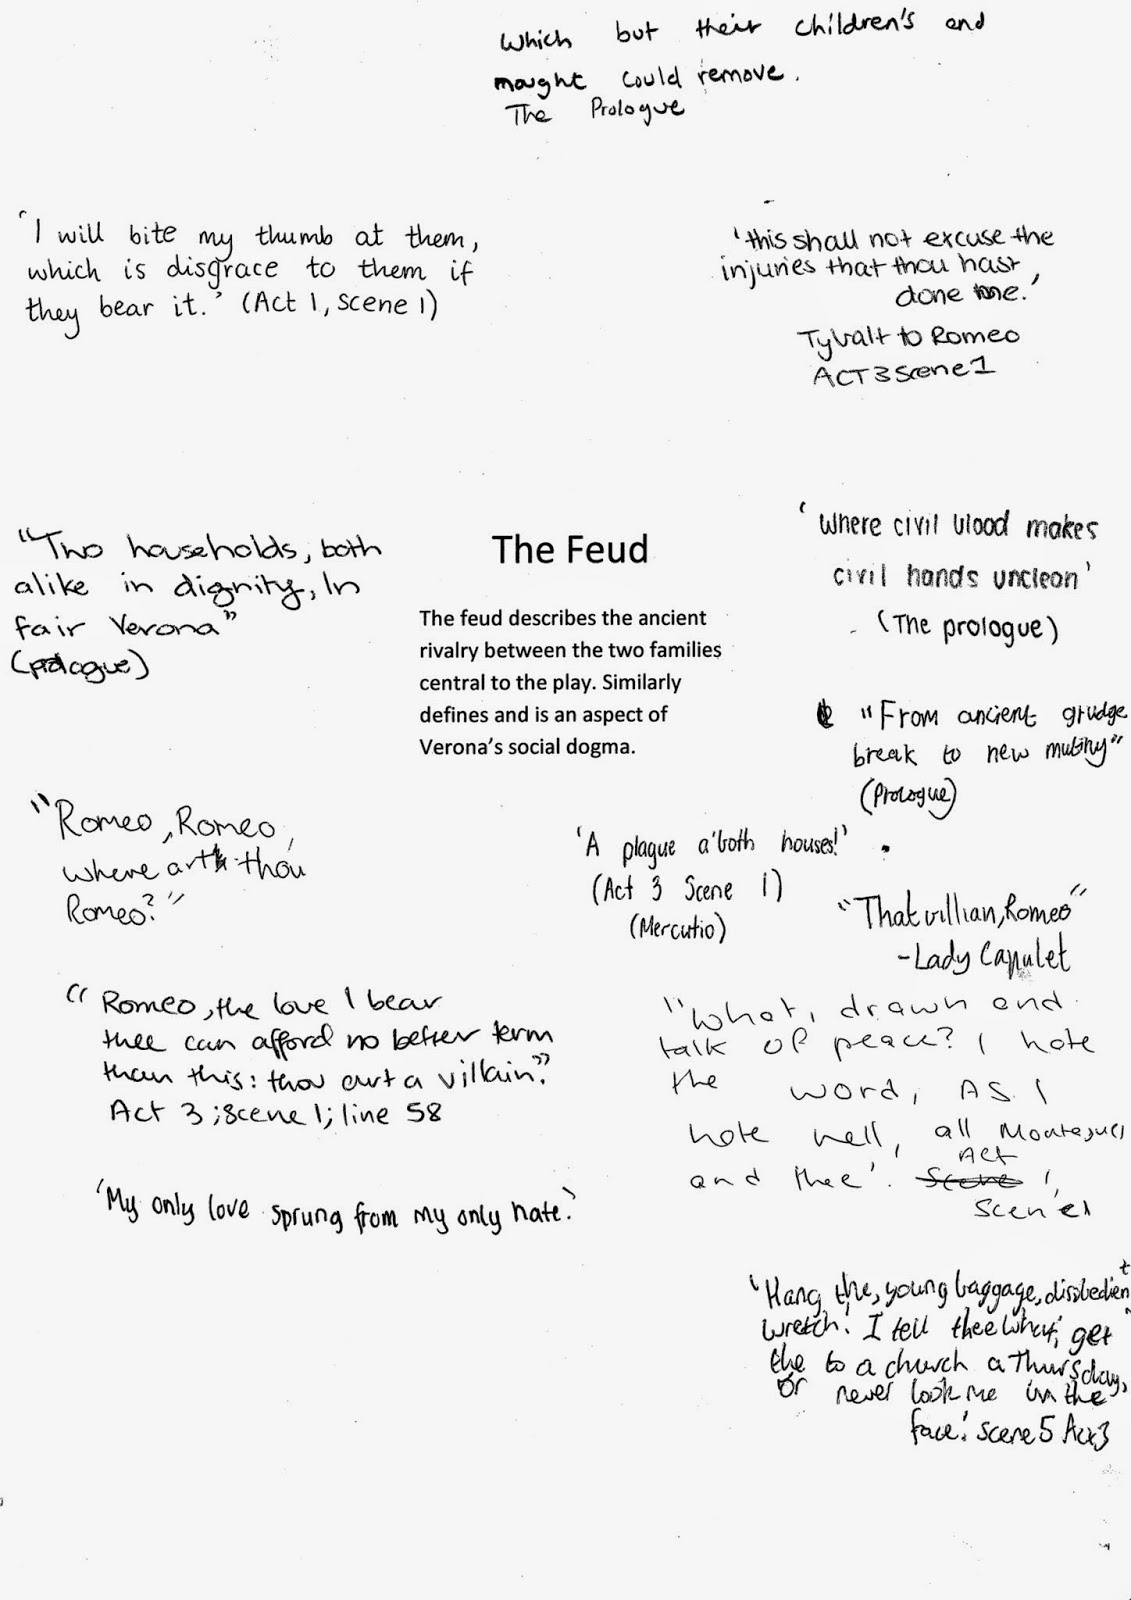 Which but their children's end
nought could remove.
The Prologue
'I will bite my thumb at them,
which is disgrace to them if
they bear it.' (Act 1, Scene 1)
'this shall not excuse the
injuries that thou hast
done me.'
Tybalt to Romeo
ACT 3 Scene 1
"Two households, both
alike in dignity, In
fair Verona"
(prologue)
The Feud
The feud describes the ancient
rivalry between the two families
central to the play. Similarly
defines and is an aspect of
Verona's social dogma.
'Where civil blood makes
civil hands unclean'
(The prologue)
"From ancient grudge
break to new mutiny"
(Prologue)
"Romeo, Romeo,
where art thou
Romeo?"
'A plague a'both houses!'
(Act 3 Scene 1)
(Mercutio)
"That villian, Romeo"
- Lady Capulet
"Romeo, the love I bear
thee can afford no better term
than this: thou art a villain."
Act 3; Scene 1; line 58
"What, drawn and
talk of peace? I hate
the word, AS I
hate hell, all Montagues
and thee'. Scene Act 1,
Scene 1
'My only love sprung from my only hate.'
'Hang the, young baggage, disobedient
wretch! I tell thee what, get
the to a church a Thursday,
or never look me in the
face!' Scene 5 Act 3